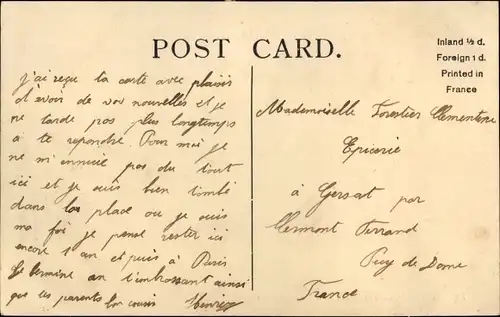 POST CARD.
Inland ½ d.
Foreign 1 d.
Printed in
France
j'ai reçue ta carte avec plaisir
d'avoir de vos nouvelles et je
ne tarde pas plus longtemps
à te repondre Pour moi je
ne m'ennuie pas du tout
ici et je suis bien tombé
dans la place ou je suis
ma foi je pense rester ici
encore 1 an et puis à Paris
Je termine en t'embrassant ainsi
que tes parents ton cousin Henri
Mademoiselle Forestier Clementine
Epicerie
à Gerzat par
Clermont Ferrand
Puy de Dome
France